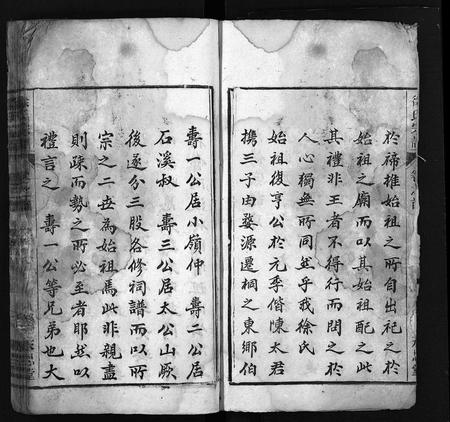 於禘推始祖之所自出祀之於
始祖之廟而以其始祖配之此
其禮非王者不得行而閟之於
人心獨無所同然乎我徐氏
始祖復亨公於元季偕陳太君
携三子由婺源遷桐之東鄉伯
壽一公居小嶺仲 壽二公居
石溪叔 壽三公居太公山厥
後遂分三股各修祠譜而以所
宗之二世為始祖焉此非親盡
則疎而勢之所必至者耶然以
禮言之 壽一公等兄弟也大